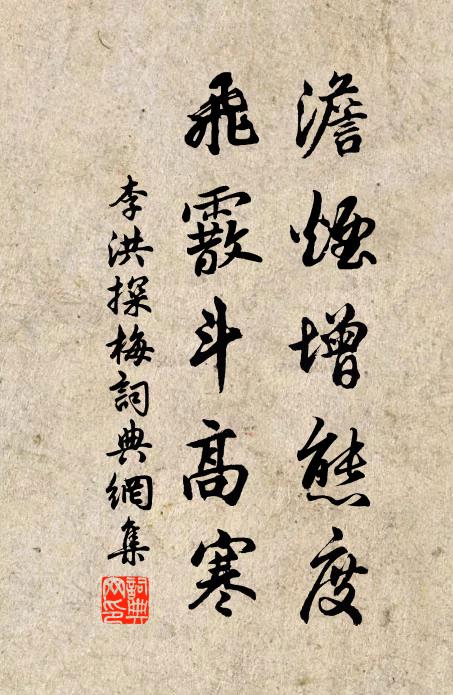 澹煙增態度
飛霰斗高寒
李洪探梅詞典網集
詞典網印